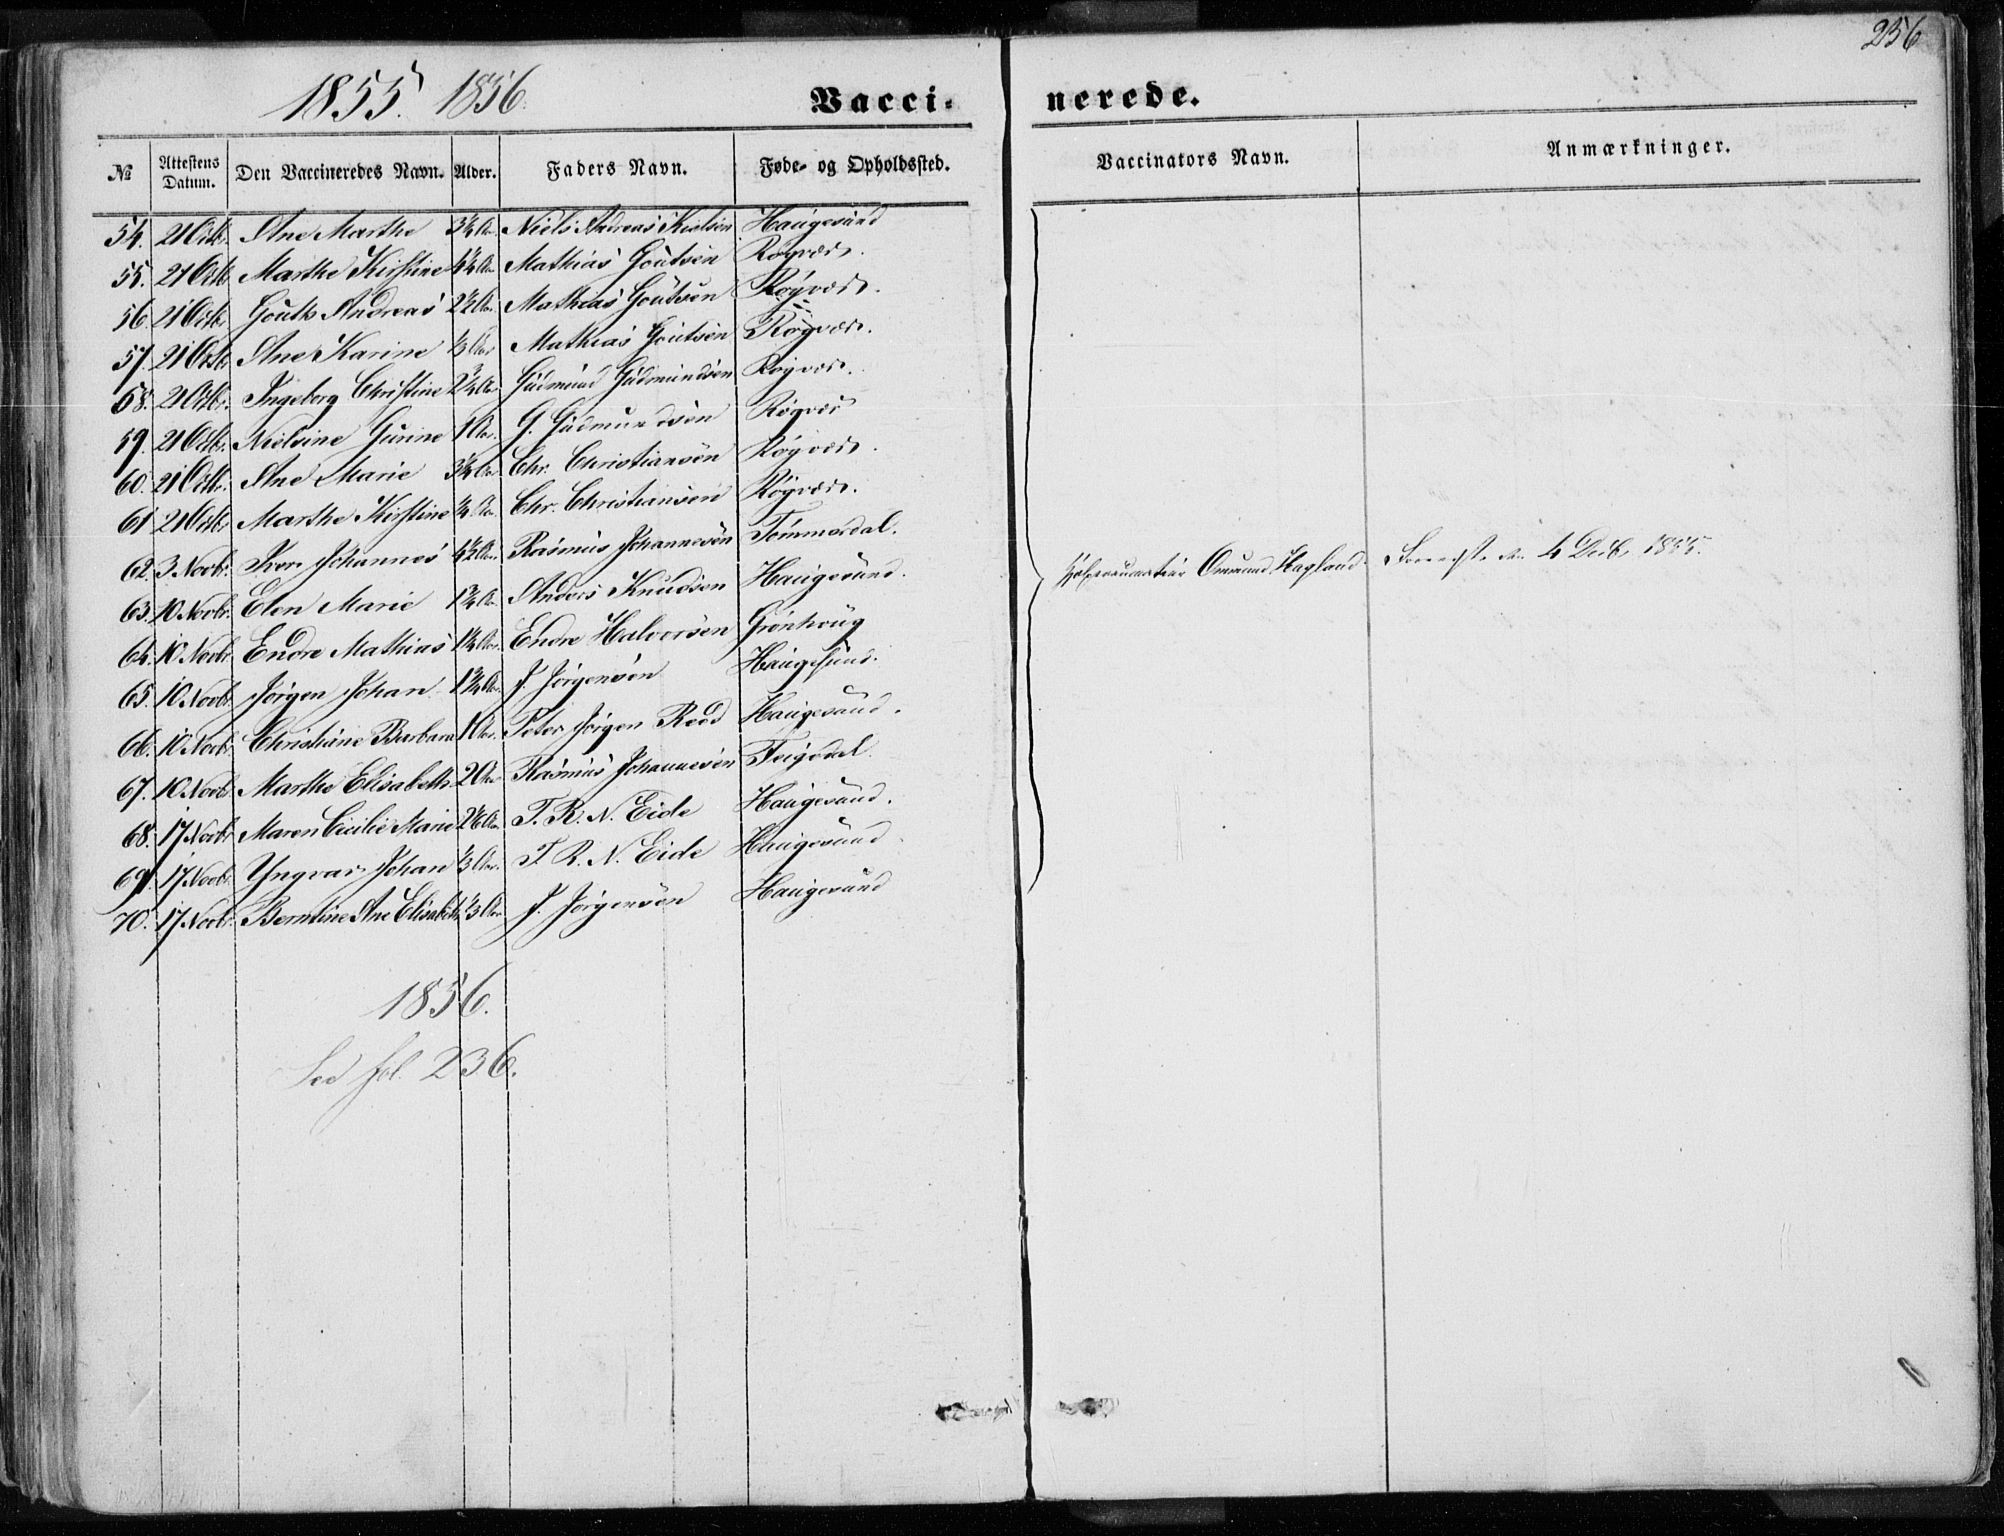 256
1855. 1856.
Vacci- nerede.
№ Attestens Datum. Den Vaccineredes Navn. Alder. Faders Navn. Føde- og Opholdssted. Vaccinators Navn. Anmærkninger.
54. 21 Octb. Ane Marthe 3¼ Aar Niels Andreas Nielsen Haugesund
55. 21 Octb. Marthe Kirstine 4¼ Aar Mathias Goutsen Røgvær.
56. 21 Octb. Gouth Andreas 2½ Aar Mathias Goutsen Røgvær.
57. 21 Octb. Ane Karine ⅓ Aar Mathias Goutsen Røgvær.
58. 21 Octb. Ingeborg Christine 2¾ Aar Gudmund Gudmundsen Røgvær.
59. 21 Octb. Nielsine Gurine 1 Aar. G. Gudmundsen Røgvær
60. 21 Octb. Ane Marie 3¼ Aar Chr. Christiansen Røgvær.
61. 21 Octb. Marthe Kirstine ¼ Aar Chr. Christiansen Røgvær.
62. 3 Novbr. Iver Johannes 4½ Aar Rasmus Johannesen Tømmerdal.
Hjelpevaccinateur Ommund Hagland. 4 Decb. 1855.
63. 10 Novbr. Elen Marie 1¾ Aar Anders Knudsen Haugesund.
64. 10 Novbr. Endre Mathias 1¼ Aar Endre Halvorsen Grønhoug
65. 10 Novbr. Jørgen Johan 1¾ Aar J. Jørgensen Haugesund.
66. 10 Novbr. Christiane Barbara 1 Aar. Peter Jørgen Rood Haugesund.
67. 10 Novbr. Marthe Elisabeth 2 Aar Rasmus Johannesen Feigedal.
68. 17 Novbr. Maren Cicilie Marie 2⅙ Aar T. R. N. Eide Haugesund.
69. 17 Novbr. Yngvar Johan ⅓ Aar. T. R. N. Eide Haugesund
70. 17 Novbr. Berntine Ane Elisabeth ⅓ Aar J. Jørgensen Haugesund
1856.
See fol. 236.